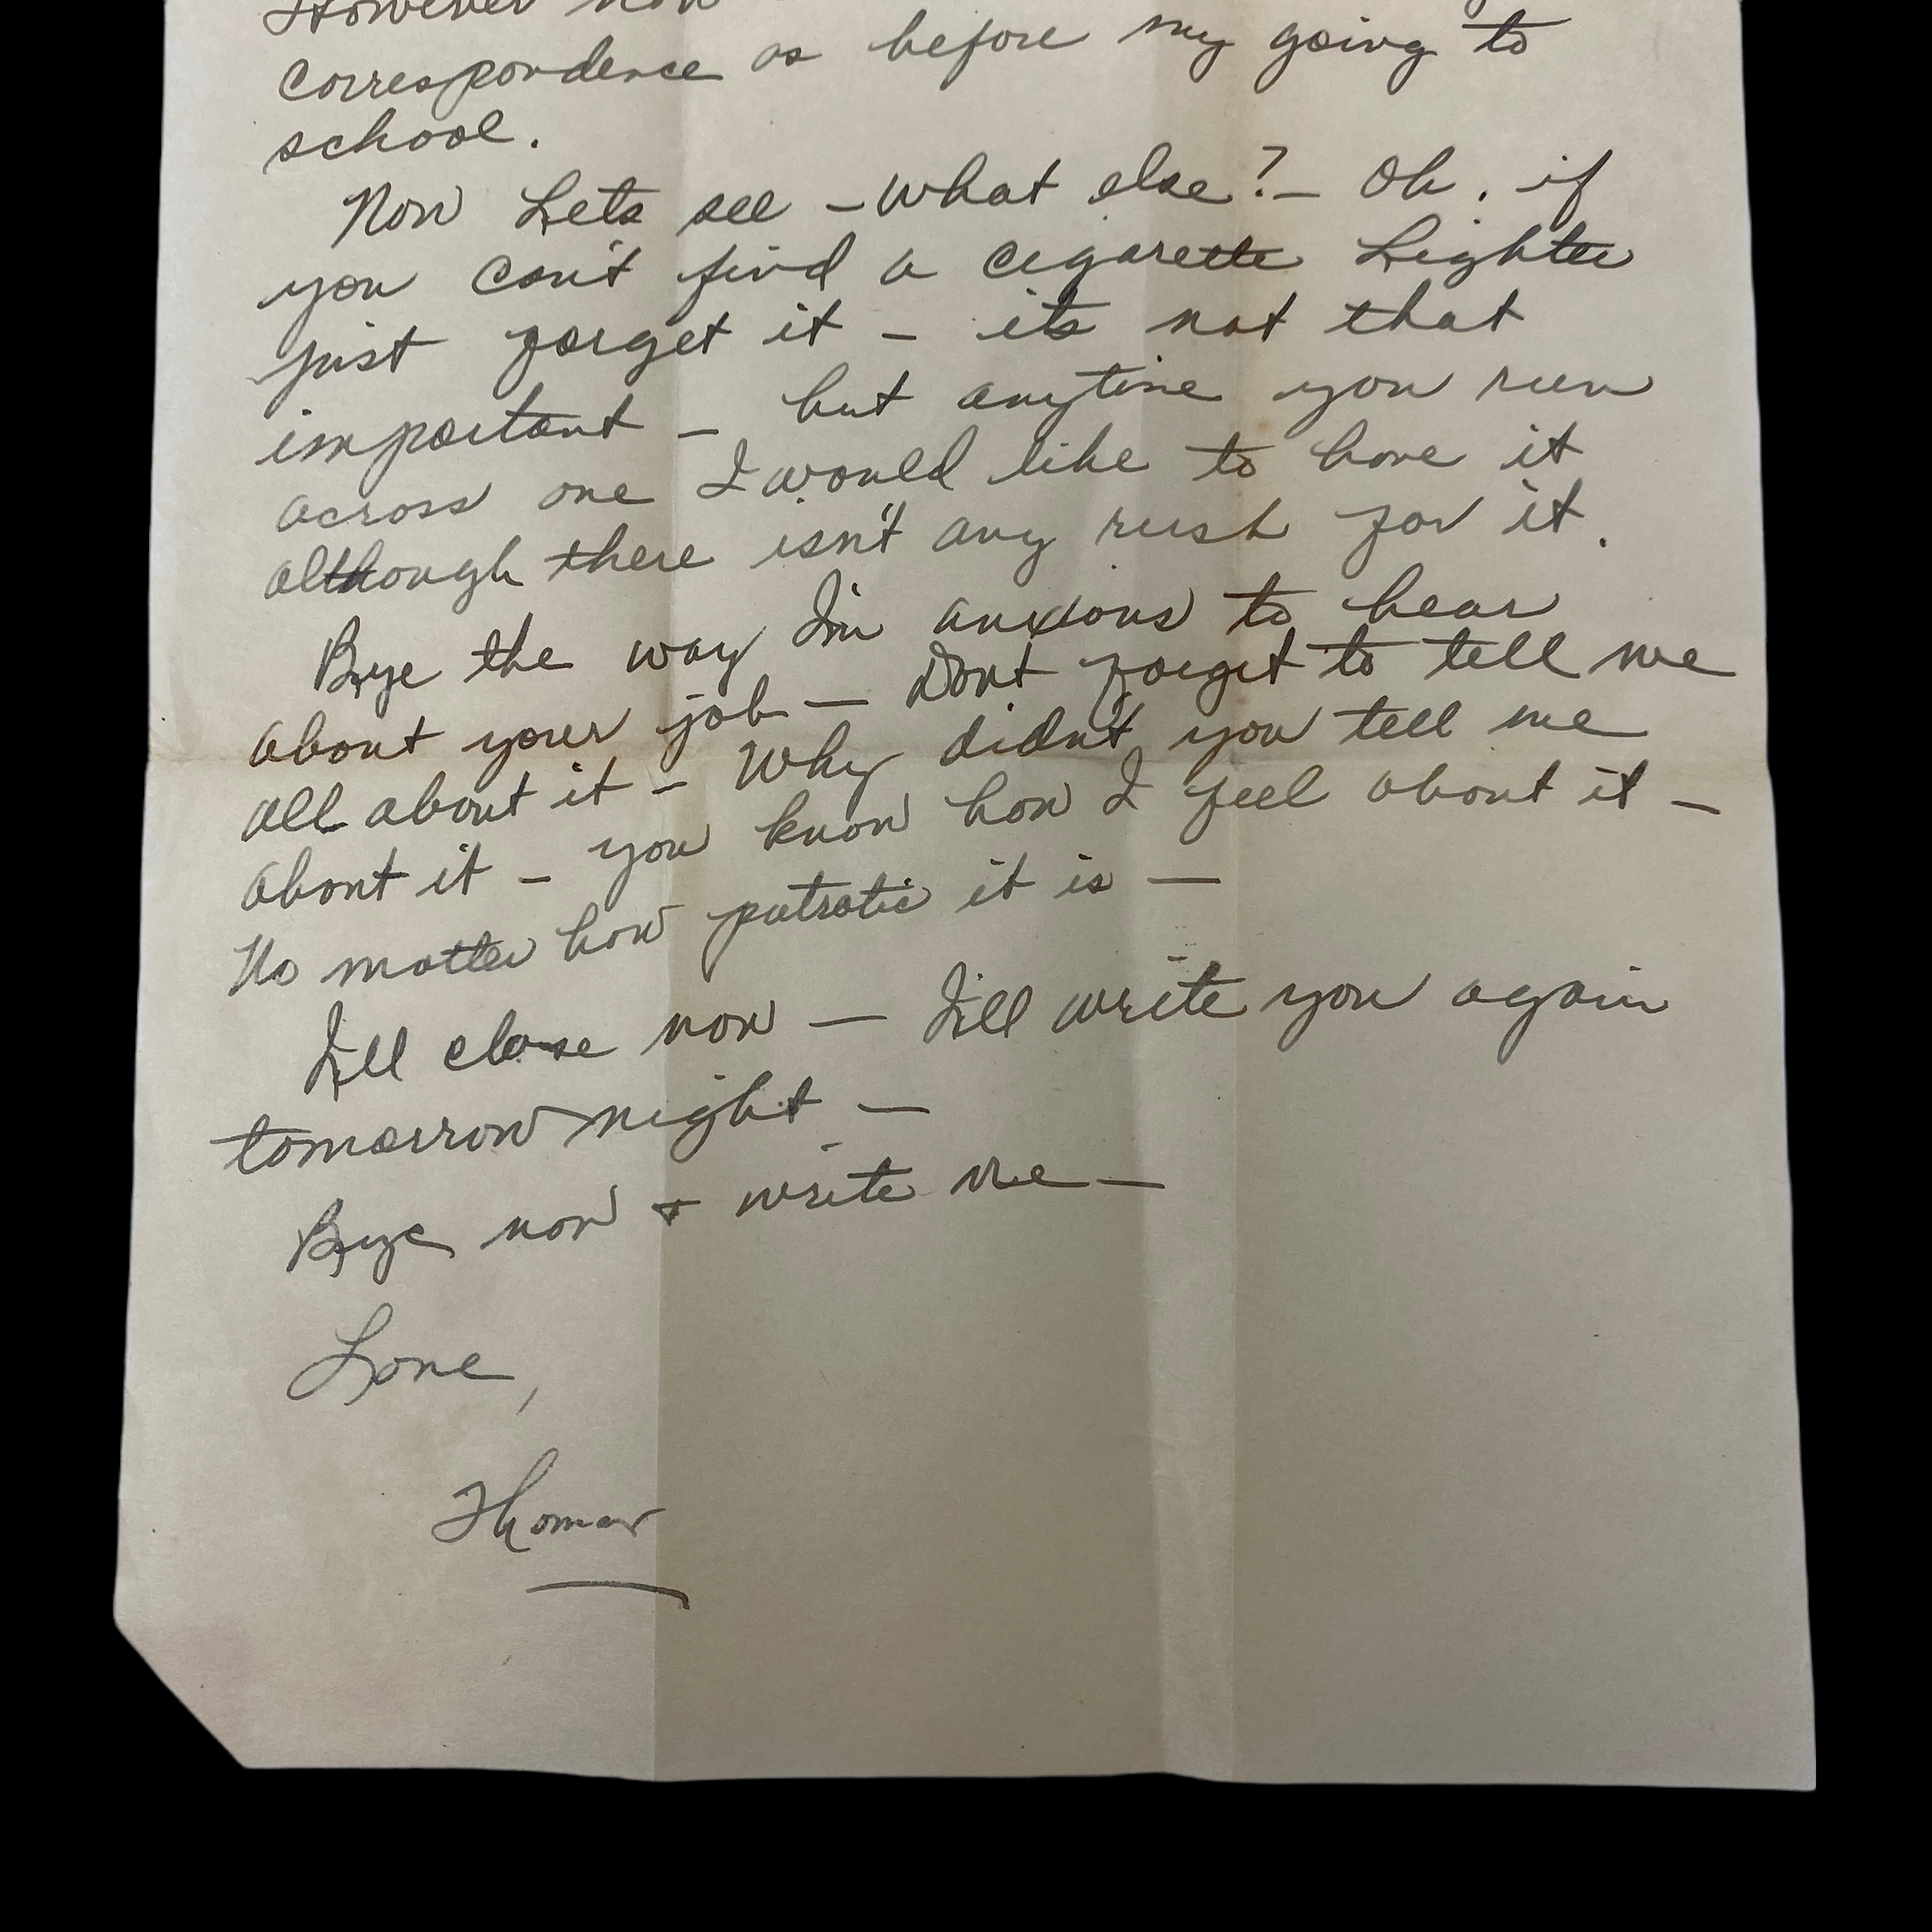 However now
correspondence as before my going to
school.
Now Lets see - What else? - Oh, if
you can't find a cigarette Lighter
just forget it - it's not that
important - but anytime you run
across one I would like to have it
although there isn't any rush for it.
Bye the way I'm anxious to hear
about your job - Dont forget to tell me
all about it - Why didn't you tell me
about it - you know how I feel about it -
No matter how patriotic it is -
I'll close now - I'll write you again
tomorrow night -
Bye now + write me -
Love,
Thomas